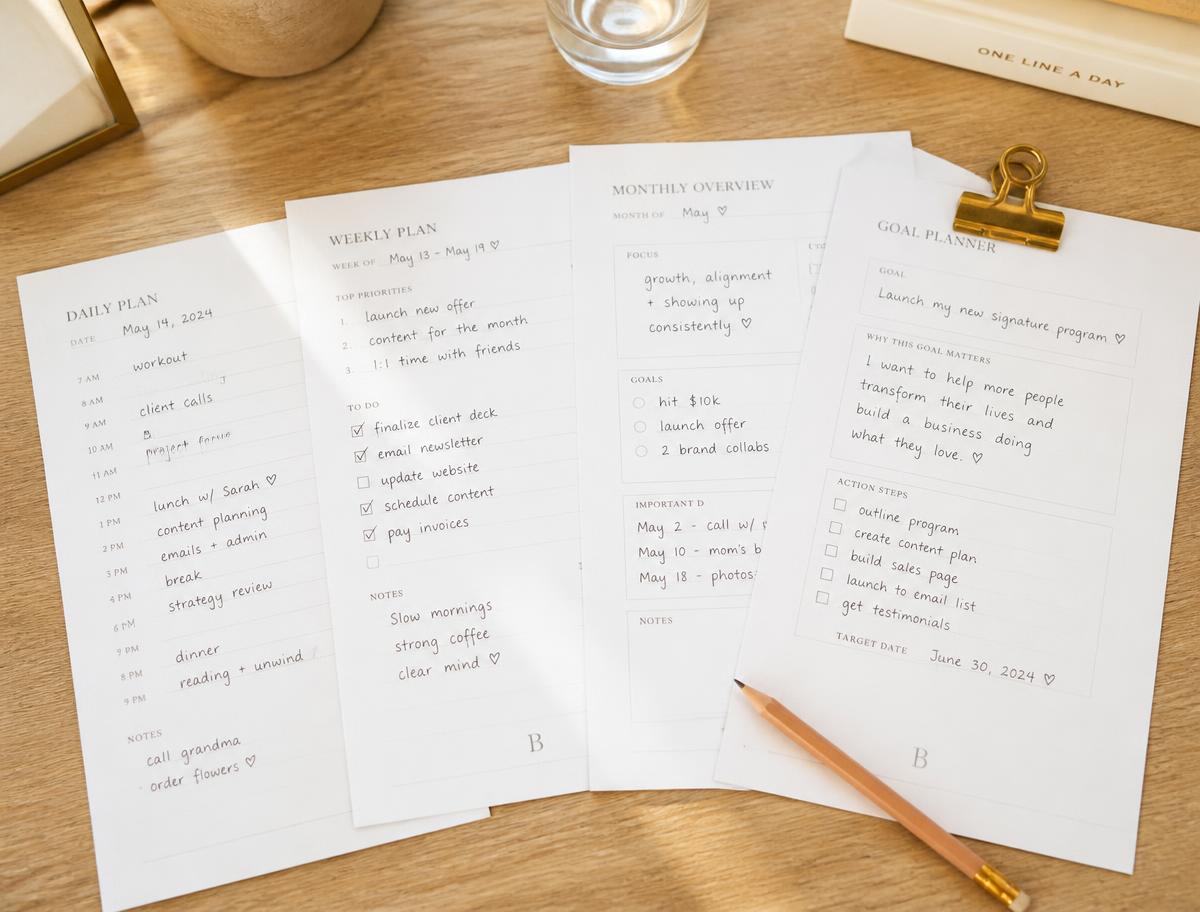 ONE LINE A DAY
DAILY PLAN
DATE May 14, 2024
workout
7 AM
8 AM
client calls
9 AM
10 AM
project
11 AM
12 PM
lunch w/ Sarah ♡
1 PM
content planning
2 PM
emails + admin
3 PM
break
4 PM
strategy review
6 PM
9 PM
dinner
8 PM
reading + unwind
9 PM
NOTES
call grandma
order flowers ♡
WEEKLY PLAN
WEEK OF May 13 - May 19 ♡
TOP PRIORITIES
1. launch new offer
2. content for the month
3. 1:1 time with friends
TO DO
finalize client deck
email newsletter
update website
schedule content
pay invoices
NOTES
Slow mornings
strong coffee
clear mind ♡
B
MONTHLY OVERVIEW
MONTH OF May ♡
FOCUS
growth, alignment
+ showing up
consistently ♡
GOALS
hit $10k
launch offer
2 brand collabs
IMPORTANT D
May 2 - call w/
May 10 - mom's b
May 18 - photos
NOTES
GOAL PLANNER
GOAL
Launch my new signature program ♡
WHY THIS GOAL MATTERS
I want to help more people
transform their lives and
build a business doing
what they love. ♡
ACTION STEPS
outline program
create content plan
build sales page
launch to email list
get testimonials
TARGET DATE June 30, 2024 ♡
B